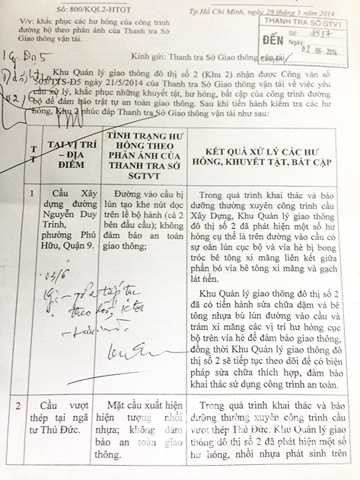 Số: 800/KQL2-HTGT
Tp.Hồ Chí Minh, ngày 29 tháng 5 năm 2014
V/v: khắc phục các hư hỏng của công trình
đường bộ theo phản ánh của Thanh tra Sở
Giao thông vận tải.
THANH TRA SỞ GTVT
ĐẾN
Số
Ngày
Kính gửi: Thanh tra Sở Giao thông vận tải
Khu Quản lý giao thông đô thị số 2 (Khu 2) nhận được Công văn số
TTS-Đ5 ngày 21/5/2014 của Thanh tra Sở Giao thông vận tải về việc yêu
cầu xử lý, khắc phục những khuyết tật, hư hỏng, bất cập của công trình đường
bộ để đảm bảo trật tự an toàn giao thông. Sau khi tiến hành kiểm tra các hư
hỏng, Khu 2 phúc đáp Thanh tra Sở Giao thông vận tải như sau:
T
T
TẠI VỊ TRÍ
– ĐỊA
ĐIỂM
TÌNH TRẠNG HƯ
HỎNG THEO
PHẢN ÁNH CỦA
THANH TRA SỞ
GTVT
KẾT QUẢ XỬ LÝ CÁC HƯ
HỎNG, KHUYẾT TẬT, BẤT CẬP
1
Cầu Xây
dựng đường
Nguyễn Duy
Trinh,
phường Phú
Hữu, Quận 9.
Đường vào cầu bị
lún tạo khe nứt dọc
trên lề bộ hành (cả 2
bên đầu cầu); không
đảm bảo an toàn
giao thông;
Trong quá trình khai thác và bảo
dưỡng thường xuyên công trình cầu
Xây Dựng, Khu Quản lý giao thông
đô thị số 2 đã phát hiện một số hư
hỏng cụ thể là trên đường vào cầu có
sự oằn lún cục bộ và vỉa hè bị bong
tróc bê tông xi măng liên kết giữa
phần bó vỉa bê tông xi măng và gạch
lát nền.
Khu Quản lý giao thông đô thị số
2 đã có tiến hành sửa chữa dặm vá bê
tông nhựa bù lún đường vào cầu và
trám xi măng các vị trí hư hỏng cục
bộ trên vỉa hè để đảm bảo giao thông,
đồng thời Khu Quản lý giao thông đô
thị số 2 sẽ tiếp tục theo dõi để có biện
pháp sửa chữa thích hợp, đảm bảo
khai thác sử dụng công trình an toàn.
2
Cầu vượt
thép tại ngã
tư Thủ Đức.
Mặt cầu xuất hiện
hiện tượng nhồi
nhựa; không đảm
bảo an toàn giao
thông.
Trong quá trình khai thác và bảo
dưỡng thường xuyên công trình cầu
vượt thép Thủ Đức. Khu Quản lý giao
thông đô thị số 2 đã phát hiện một số
hư hỏng, nhồi nhựa phát sinh trên